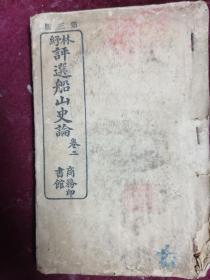 第三版
林紓
評選船山史論
卷二
商務印
書館